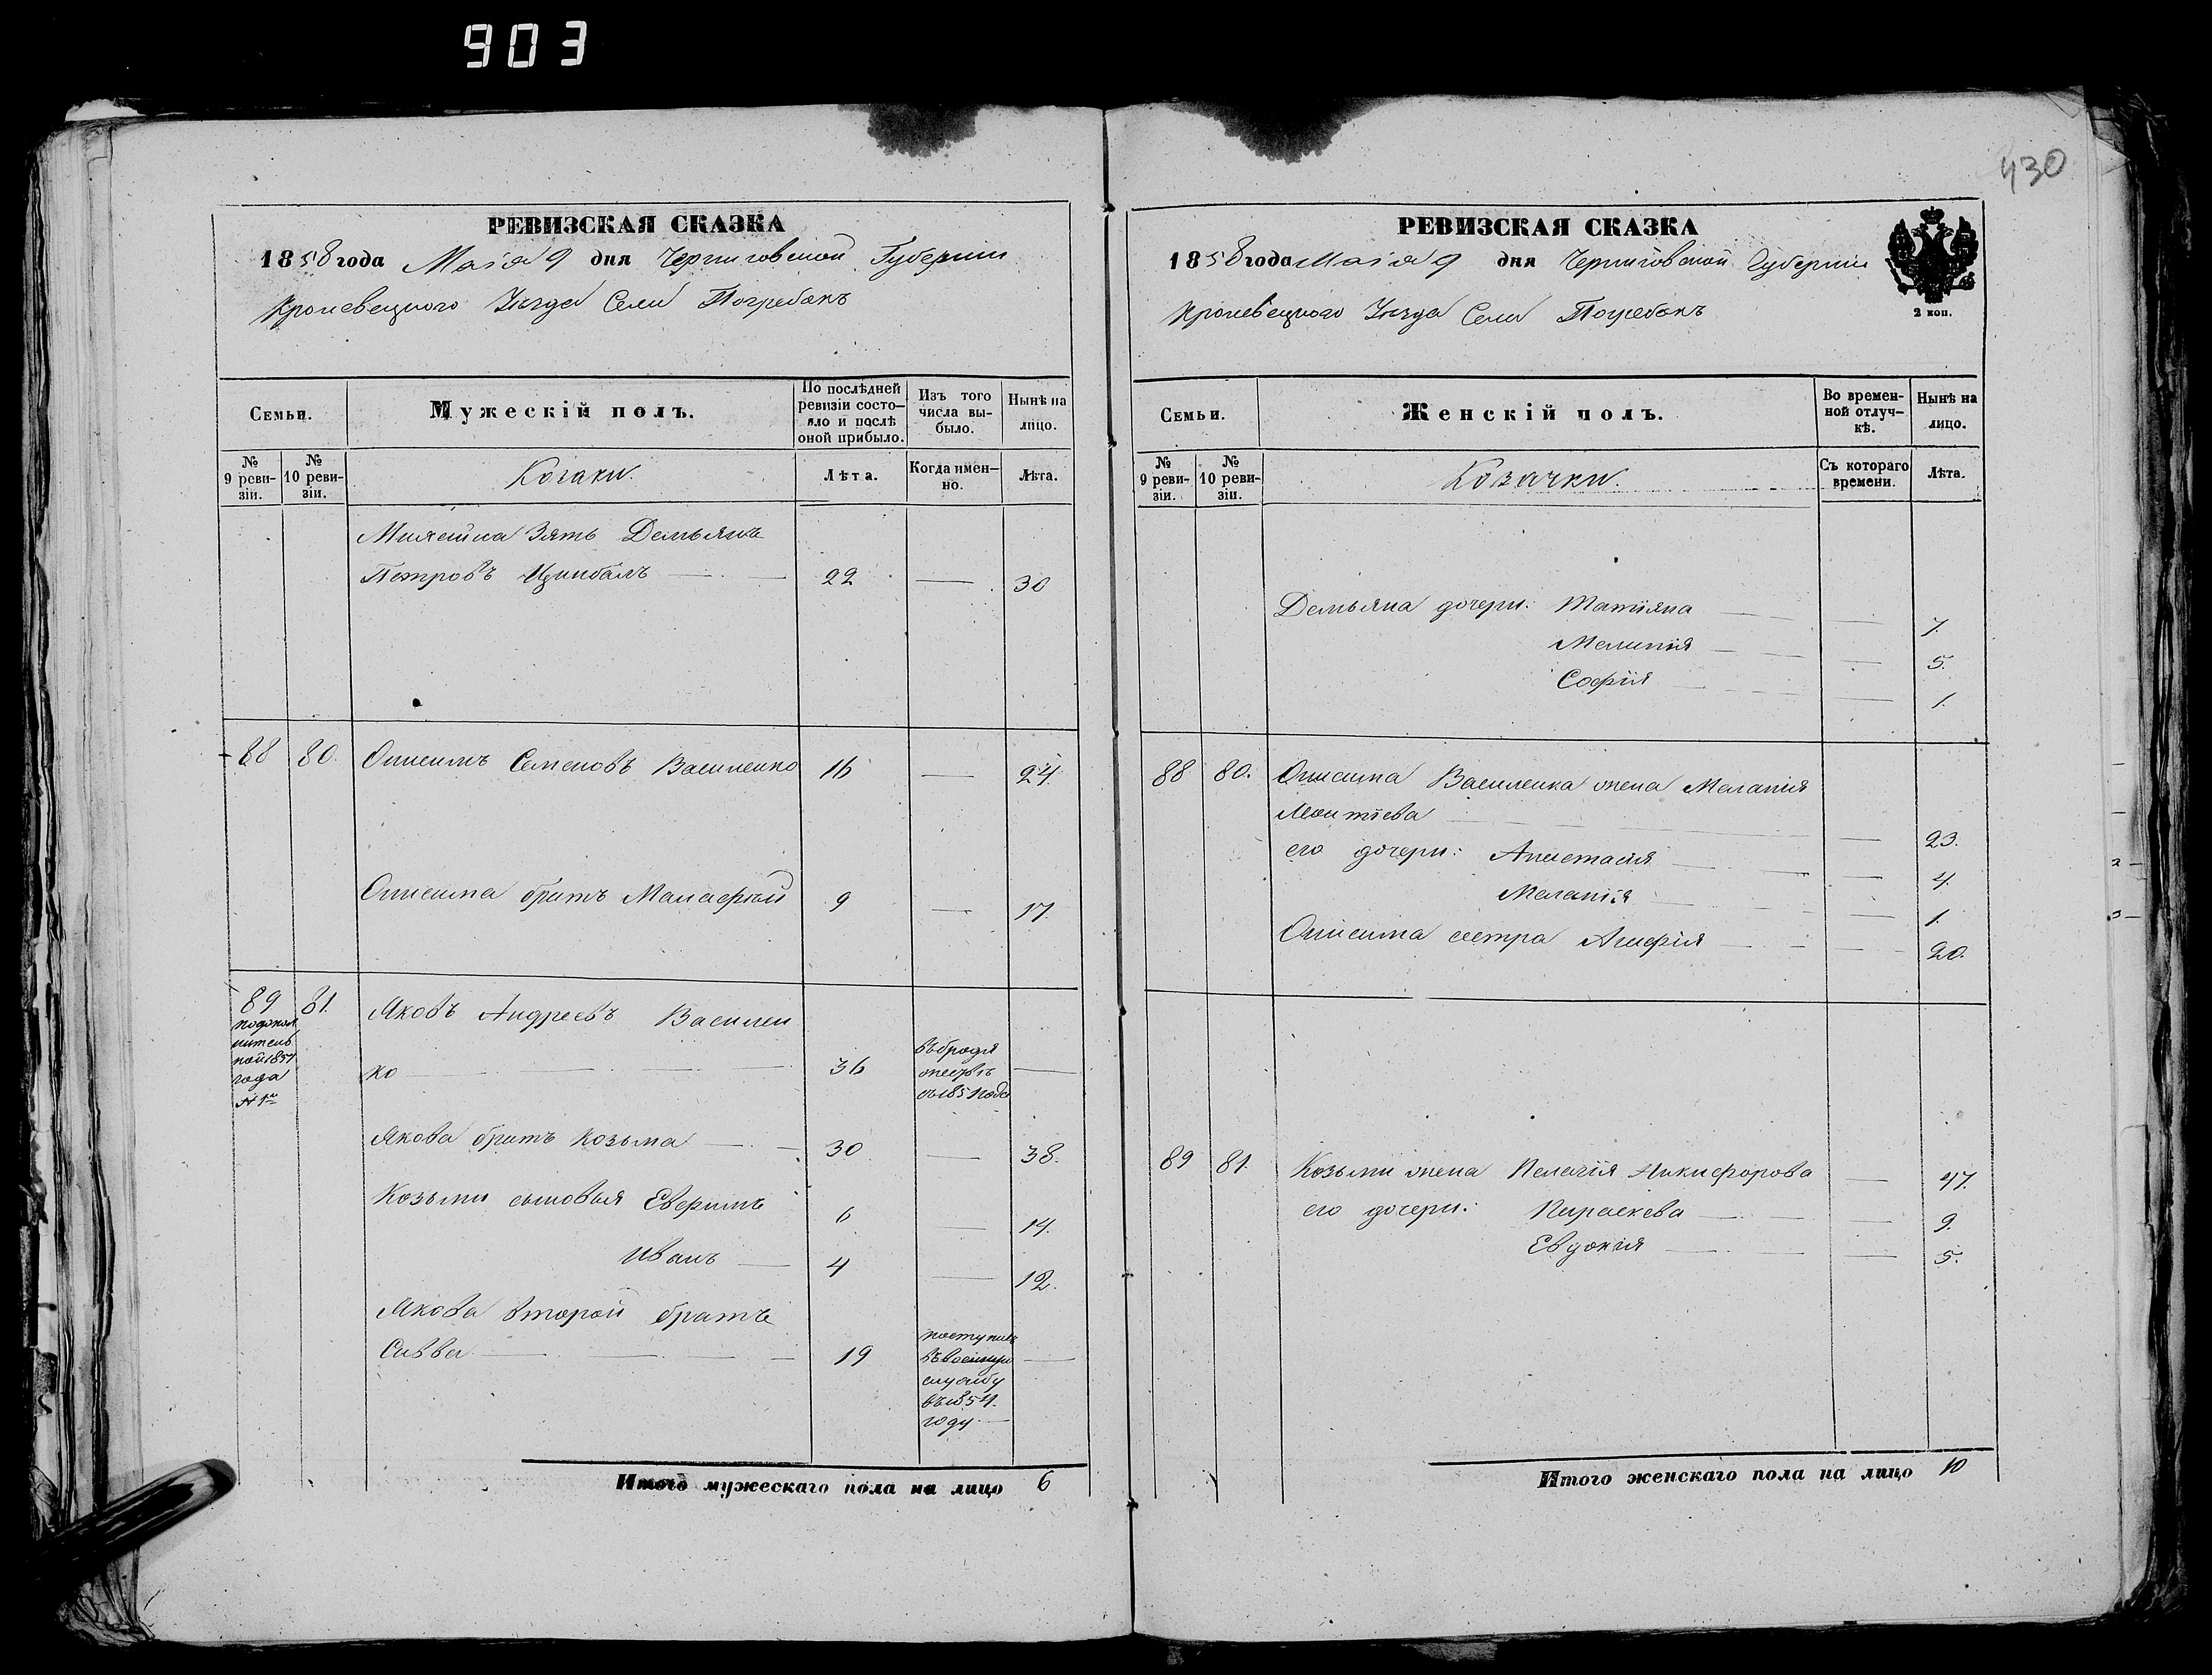 903
430
РЕВИЗСКАЯ СКАЗКА
1858 года Маія 9 дня Черниговской Губерніи
Кролевецкого Уѣзда Села Погребокъ
Семьи.
Мужескій полъ.
По послѣдней ревизіи состо-
яло и послѣ
оной прибыло.
Изъ того
числа вы-
было.
Нынѣ на
лицо.
№
9 реви-
зіи.
№
10 реви-
зіи.
Козаки.
Лѣта.
Когда имен-
но.
Лѣта.
Зять Демьянъ
Петровъ Цимбалъ 22 — 30
88 80. Онисимъ Семеновъ Василенко 16 — 24
Онисима братъ Малафѣй 9 — 17
89 81. Яковъ Андреевъ Василен
ко 36 —
подопол
нитель
ной 1857
года
№ 1й
въ бродя
жествѣ
съ 1851 года
Якова братъ Козьма 30 — 38.
Козьмы сыновья Евфимъ 6 — 14.
Иванъ 4 — 12.
Якова второй братъ
Савва 19 —
поступилъ
въ военную
службу
въ 1854.
году.
Итого мужескаго пола на лицо 6
РЕВИЗСКАЯ СКАЗКА
1858 года Маія 9 дня Черниговской Губерніи
Кролевецкого Уѣзда Села Погребокъ
2 коп.
Семьи.
Женскій полъ.
Во времен-
ной отлуч-
кѣ.
Нынѣ на
лицо.
№
9 реви-
зіи.
№
10 реви-
зіи.
Козачки.
Съ котораго
времени.
Лѣта.
Демьяна дочери: Татіяна — 7.
Меланія — 5.
Софія — 1.
88 80. Онисима Василенка жена Меланія
Леонтіева — 23.
его дочери: Анастасія — 4.
Меланія — 1.
Онисима сестра Агафія — 20.
89 81. Козьмы жена Пелагія Никифорова — 47.
его дочери: Параскева — 9.
Евдокія — 5.
Итого женскаго пола на лицо 10